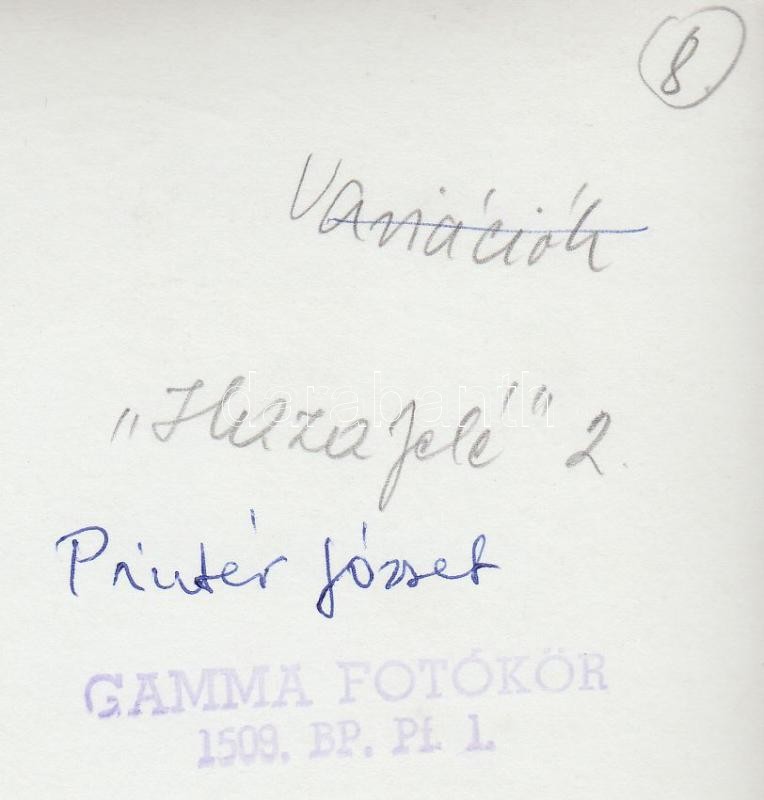 8.
Variációk
„Hazafelé" 2.
Printér József
GAMMA FOTÓKÖR
1509. BP. Pf. 1.
darabanth